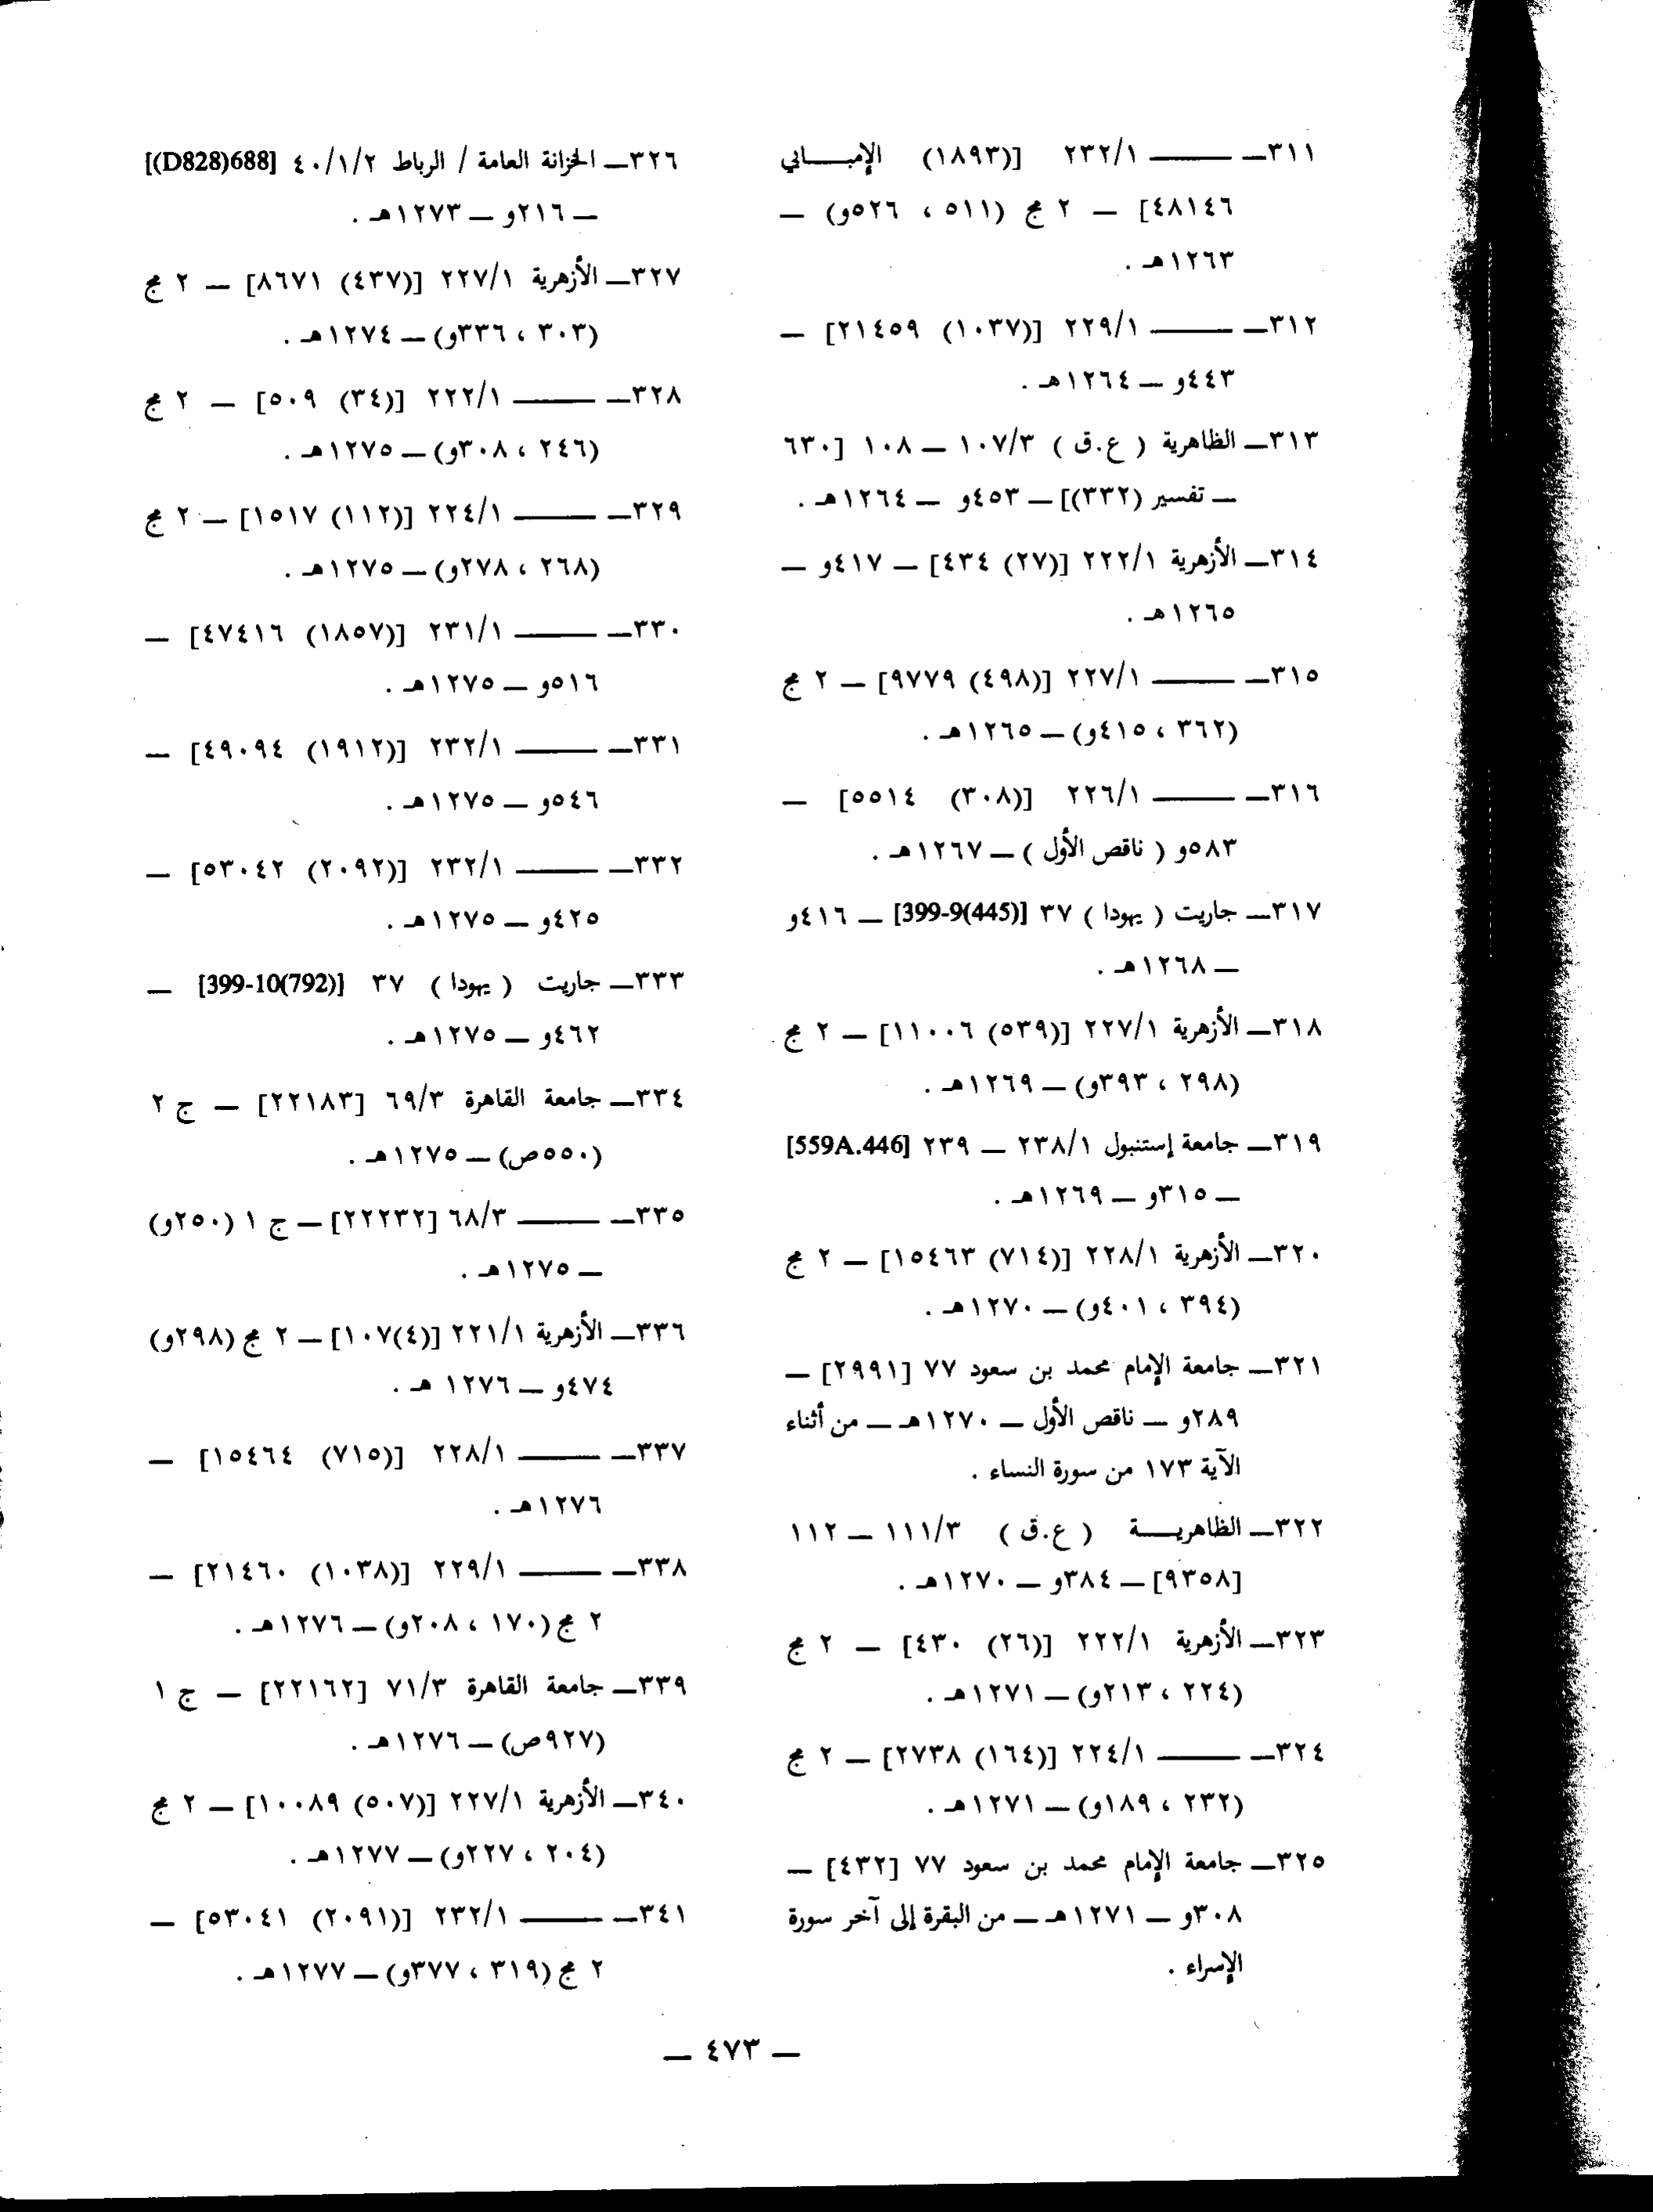 ٣١١ــ ــــــــ ٢٣٢/١ [(١٨٩٣) الإمبـــابي
٤٨١٤٦] ــ ٢ مج (٥١١ ، ٥٢٦و) ــ
١٢٦٣هـ .
٣١٢ــ ــــــــ ٢٢٩/١ [(١٠٣٧) ٢١٤٥٩] ــ
٤٤٣و ــ ١٢٦٤هـ .
٣١٣ــ الظاهرية ( ع.ق ) ١٠٧/٣ ــ ١٠٨ [٦٣٠
ــ تفسير (٣٣٢)] ــ ٤٥٣و ــ ١٢٦٤هـ .
٣١٤ــ الأزهرية ٢٢٢/١ [(٢٧) ٤٣٤] ــ ٤١٧و ــ
١٢٦٥هـ .
٣١٥ــ ــــــــ ٢٢٧/١ [(٤٩٨) ٩٧٧٩] ــ ٢ مج
(٣٦٢ ، ٤١٥و) ــ ١٢٦٥هـ .
٣١٦ــ ــــــــ ٢٢٦/١ [(٣٠٨) ٥٥١٤] ــ
٥٨٣و ( ناقص الأول ) ــ ١٢٦٧هـ .
٣١٧ــ جاريت ( يهودا ) ٣٧ [399-9(445)] ــ ٤١٦و
ــ ١٢٦٨هـ .
٣١٨ــ الأزهرية ٢٢٧/١ [(٥٣٩) ١١٠٠٦] ــ ٢ مج
(٢٩٨ ، ٣٩٣و) ــ ١٢٦٩هـ .
٣١٩ــ جامعة إستنبول ٢٣٨/١ ــ ٢٣٩ [559A.446]
ــ ٣١٥و ــ ١٢٦٩هـ .
٣٢٠ــ الأزهرية ٢٢٨/١ [(٧١٤) ١٥٤٦٣] ــ ٢ مج
(٣٩٤ ، ٤٠١و) ــ ١٢٧٠هـ .
٣٢١ــ جامعة الإمام محمد بن سعود ٧٧ [٢٩٩١] ــ
٢٨٩و ــ ناقص الأول ــ ١٢٧٠هـ ــ من أثناء
الآية ١٧٣ من سورة النساء .
٣٢٢ــ الظاهريـــة ( ع.ق ) ١١١/٣ ــ ١١٢
[٩٣٥٨] ــ ٣٨٤و ــ ١٢٧٠هـ .
٣٢٣ــ الأزهرية ٢٢٢/١ [(٢٦) ٤٣٠] ــ ٢ مج
(٢٢٤ ، ٢١٣و) ــ ١٢٧١هـ .
٣٢٤ــ ــــــــ ٢٢٤/١ [(١٦٤) ٢٧٣٨] ــ ٢ مج
(٢٣٢ ، ١٨٩و) ــ ١٢٧١هـ .
٣٢٥ــ جامعة الإمام محمد بن سعود ٧٧ [٤٣٢] ــ
٣٠٨و ــ ١٢٧١هـ ــ من البقرة إلى آخر سورة
الإسراء .
٣٢٦ــ الخزانة العامة / الرباط ٤٠/١/٢ [(D828)688]
ــ ٢١٦و ــ ١٢٧٣هـ .
٣٢٧ــ الأزهرية ٢٢٧/١ [(٤٣٧) ٨٦٧١] ــ ٢ مج
(٣٠٣ ، ٣٣٦و) ــ ١٢٧٤هـ .
٣٢٨ــ ــــــــ ٢٢٢/١ [(٣٤) ٥٠٩] ــ ٢ مج
(٢٤٦ ، ٣٠٨و) ــ ١٢٧٥هـ .
٣٢٩ــ ــــــــ ٢٢٤/١ [(١١٢) ١٥١٧] ــ ٢ مج
(٢٦٨ ، ٢٧٨و) ــ ١٢٧٥هـ .
٣٣٠ــ ــــــــ ٢٣١/١ [(١٨٥٧) ٤٧٤١٦] ــ
٥١٦و ــ ١٢٧٥هـ .
٣٣١ــ ــــــــ ٢٣٢/١ [(١٩١٢) ٤٩٠٩٤] ــ
٥٤٦و ــ ١٢٧٥هـ .
٣٣٢ــ ــــــــ ٢٣٢/١ [(٢٠٩٢) ٥٣٠٤٢] ــ
٤٢٥و ــ ١٢٧٥هـ .
٣٣٣ــ جاريت ( يهودا ) ٣٧ [399-10(792)] ــ
٤٦٢و ــ ١٢٧٥هـ .
٣٣٤ــ جامعة القاهرة ٦٩/٣ [٢٢١٨٣] ــ ج ٢
(٥٥٠ص) ــ ١٢٧٥هـ .
٣٣٥ــ ــــــــ ٦٨/٣ [٢٢٢٣٢] ــ ج ١ (٢٥٠و)
ــ ١٢٧٥هـ .
٣٣٦ــ الأزهرية ٢٢١/١ [(٤)١٠٧] ــ ٢ مج (٢٩٨و)
٤٧٤و ــ ١٢٧٦ هـ .
٣٣٧ــ ــــــــ ٢٢٨/١ [(٧١٥) ١٥٤٦٤] ــ
١٢٧٦هـ .
٣٣٨ــ ــــــــ ٢٢٩/١ [(١٠٣٨) ٢١٤٦٠] ــ
٢ مج (١٧٠ ، ٢٠٨و) ــ ١٢٧٦هـ .
٣٣٩ــ جامعة القاهرة ٧١/٣ [٢٢١٦٢] ــ ج ١
(٩٢٧ص) ــ ١٢٧٦هـ .
٣٤٠ــ الأزهرية ٢٢٧/١ [(٥٠٧) ١٠٠٨٩] ــ ٢ مج
(٢٠٤ ، ٢٢٧و) ــ ١٢٧٧هـ .
٣٤١ــ ــــــــ ٢٣٢/١ [(٢٠٩١) ٥٣٠٤١] ــ
٢ مج (٣١٩ ، ٣٧٧و) ــ ١٢٧٧هـ .
ــ ٤٧٣ ــ